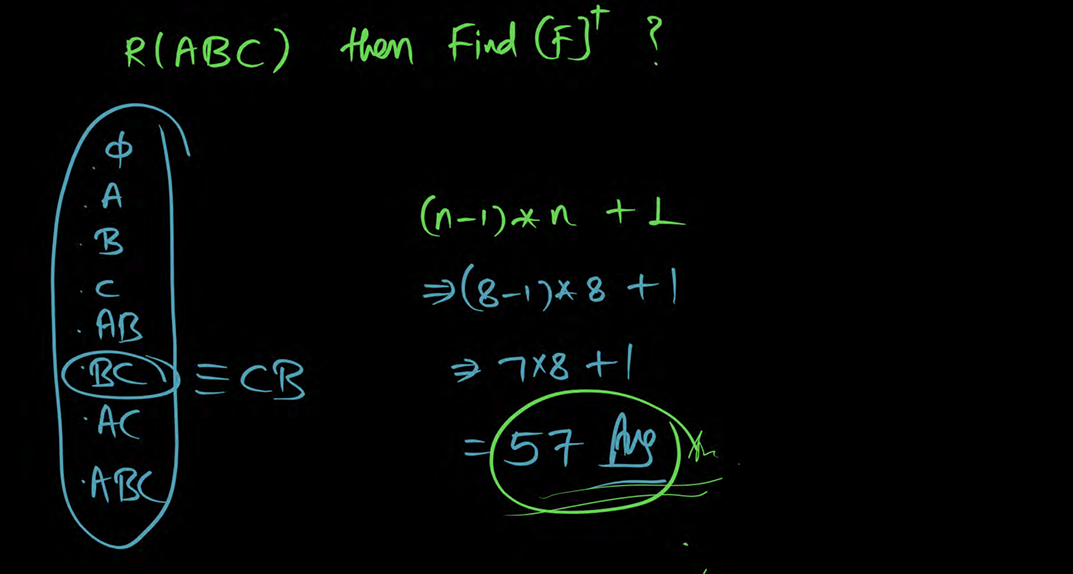 R(ABC) then Find [F]⁺ ?
ϕ
A
B
C
AB
BC ≡ CB
AC
ABC
(n-1)*n + 1
⇒(8-1)*8 + 1
⇒ 7x8 + 1
= 57 Ans